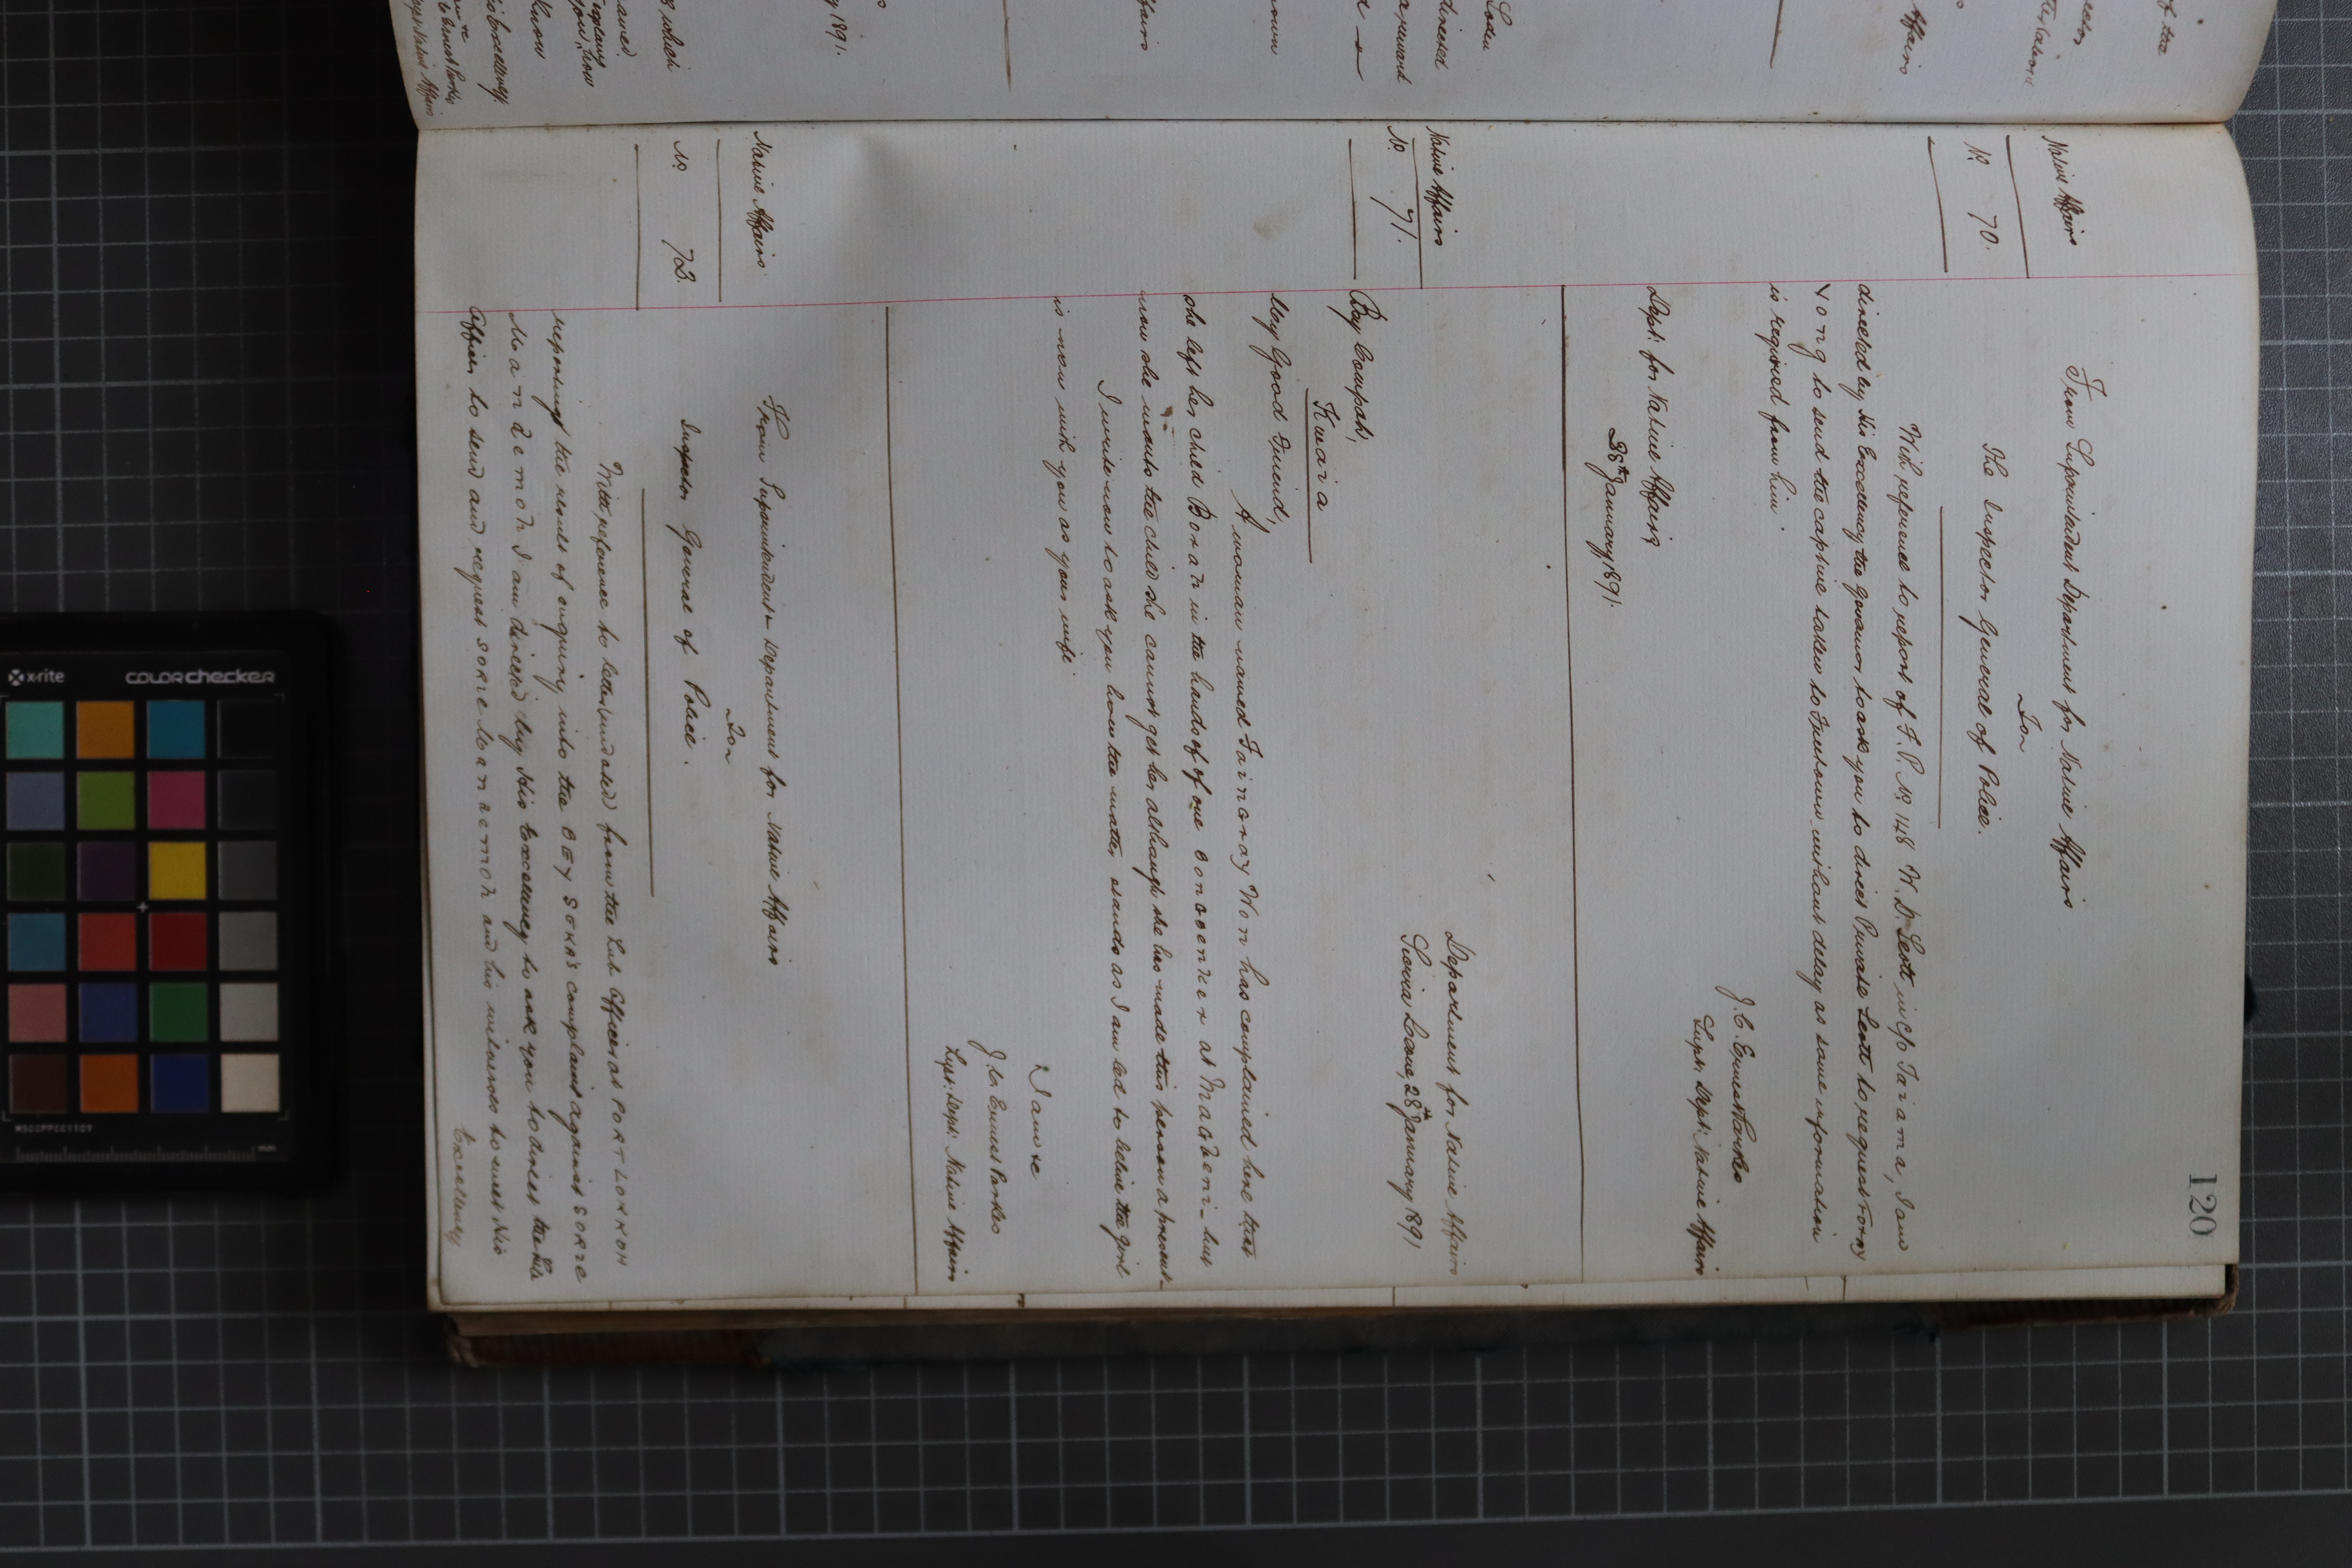 120
Native Affairs
No 70.
From Superintendent Department for Native Affairs
For
The Inspector General of Police.
With reference to report of F. P. No 148 W. D. Scott in c/o Taiama, I am
directed by His Excellency the Governor to ask you to direct Private Scott to request
Yong to send the captive taken to Freetown without delay as some information
is required from him.
J. C. Ernest Parkes
Supt. Dept: Native Affairs
Dept: for Native Affairs
28th January 1891.
Native Affairs
No 71.
Department for Native Affairs
Sierra Leone, 28th January 1891
Bey Compah,
Kwaia
My Good Friend,
A woman named Faincray Won has complained here that
she left her child Borah in the hands of of one at but
now she wants the child she cannot get her although she has made this person a present.
I write now to ask you how the matter stands as I am led to believe the girl
is now with you as your wife.
I am &c
J. C. Ernest Parkes
Supt: Dept: Native Affairs
Native Affairs
No 72.
From Superintendent Department for Native Affairs
For
Inspector General of Police.
With reference to letter (minuted) from the Sub Officer at PORT LOKKOH
reporting the result of enquiry into the BEY SOKA'S complaint against SORIE
I am directed by His Excellency to ask you to direct the Sub
Officer to send and request SORIE and his witnesses to meet His
Excellency